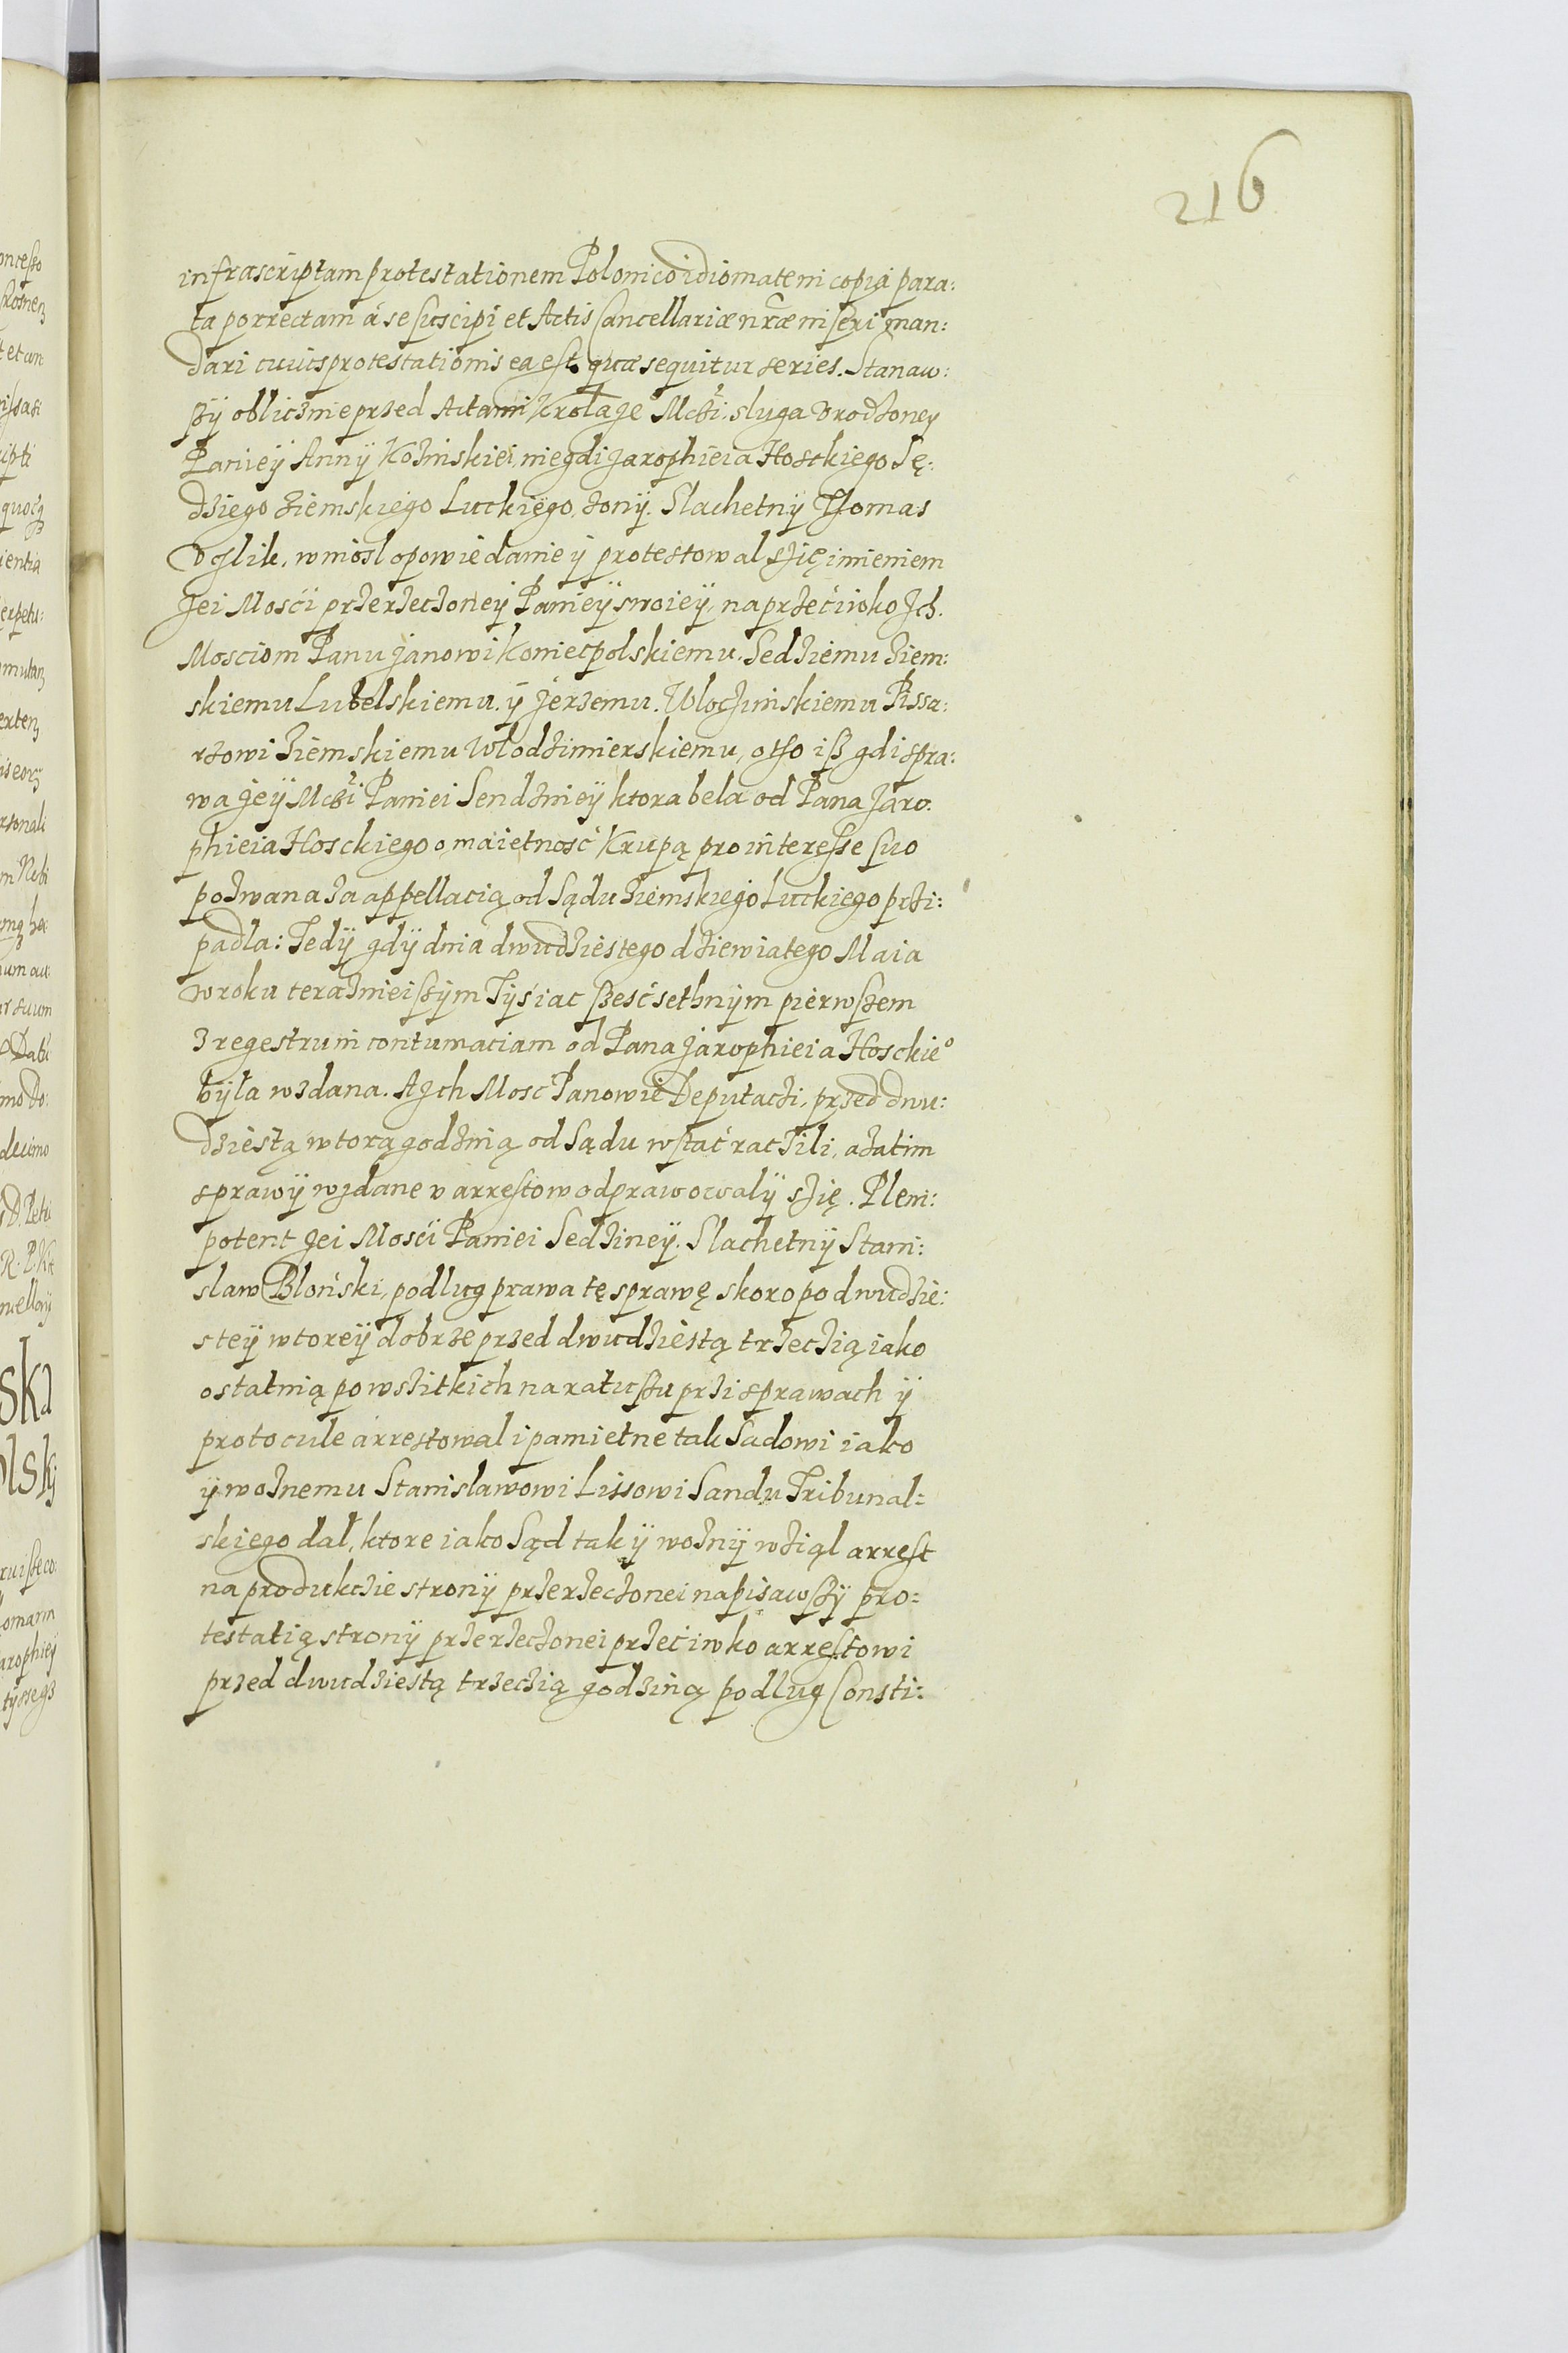 216
infrascriptam protestationem Polonico idiomate in copia para:
ta porrectam á se suscipi et Actis Cancellariæ nr̃æ inseri man:
dari cuius protestationis ea est quæ sequitur series. Stanaw:
szÿ oblicznie przed Actami Krola Je Mczi. sluga vrodzoney
Paniey Annÿ Kozinskiei, niegdi Jarophieia Hosckiego Sę:
dziego ziemskiego Luckiego, zonÿ. Slachetnÿ Thomas
Voglik, wniosl opowiedanie ÿ protestowal szię imieniem
Jei Mosci przerzeczoney Panieÿ swoieÿ, naprzeciwko Ich.
Mosciom Panu Janowi Koniecpolskiemu. Sedziemu ziem:
skiemu Lubelskiemu. ÿ Jerzemu. Wloczimskiemu Pissa:
rzowi ziemskiemu Wlodzimierskiemu, o tho isz gdi spra:
wa Jeÿ Mczi Paniei Sendznieÿ ktora bela od Pana Jaro:
phieia Hosckiego o maietnosć Krupą pro interesse suo
pozwana za appellacią od Sądu ziemskiego Luckiego przi:
padla: Tedÿ gdÿ dnia dwudziestego dziewiatego Maia
w roku teraznieiszÿm Tÿsiac szesćsethnÿm pierwszem
z regestru in contumaciam od Pana Jarophieia Hosckie°
bÿła wzdana. A Ich Mosc Panowie Deputaczi, przed dwu:
dziestą wtorą godzinią od Sądu wstać raczili, a zatim
sprawÿ wzdane v arrestow odprawowalÿ szię. Pleni:
potent Jei Mosci Paniei Sedzineÿ. Slachetnÿ Stani:
slaw Bloński, podlug prawa tę sprawę skoro po dwudzie:
steÿ wtoreÿ dobrze przed dwudziestą trzeczią iako
ostatnią po wszitkich na ratuszu przi sprawach ÿ
protocule arrestowal i pamietne tak Sadowi iako
ÿ woznemu Stanislawowi Lissowi Sandu Tribunal:
skiego dał, ktore iako Sąd tak ÿ woznÿ wziąl arrest
na produkczie stronÿ przerzeczonei napisawszÿ pro:
testatią stronÿ przerzeczonei przeciwko arrestowi
przed dwudziestą trzeczią godziną podlug Consti: